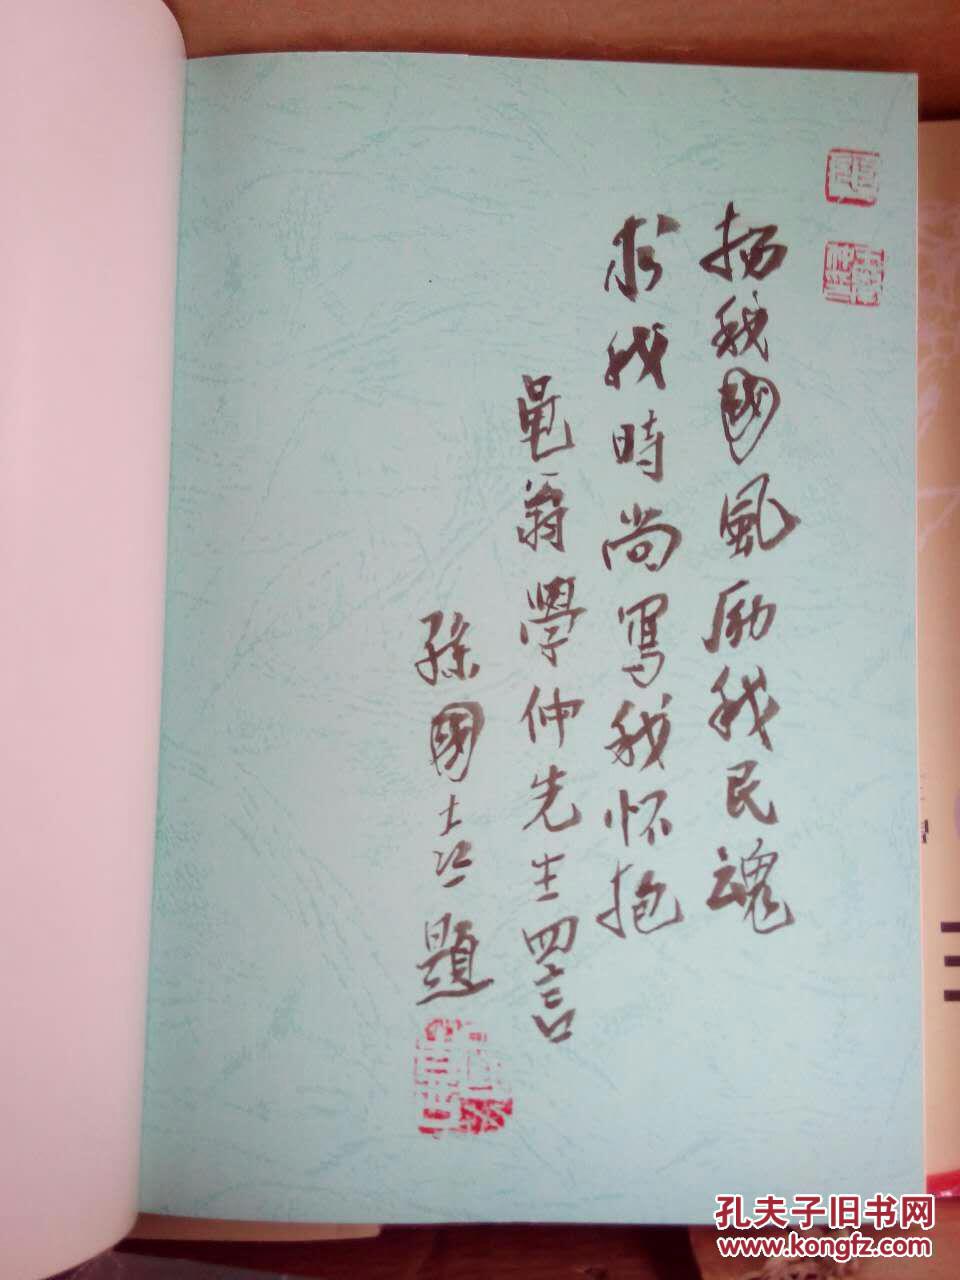 扬我國風励我民魂
求我時尚寫我怀抱
黾翁學仲先生四言
孫國士　題
孔夫子旧书网
www.kongfz.com